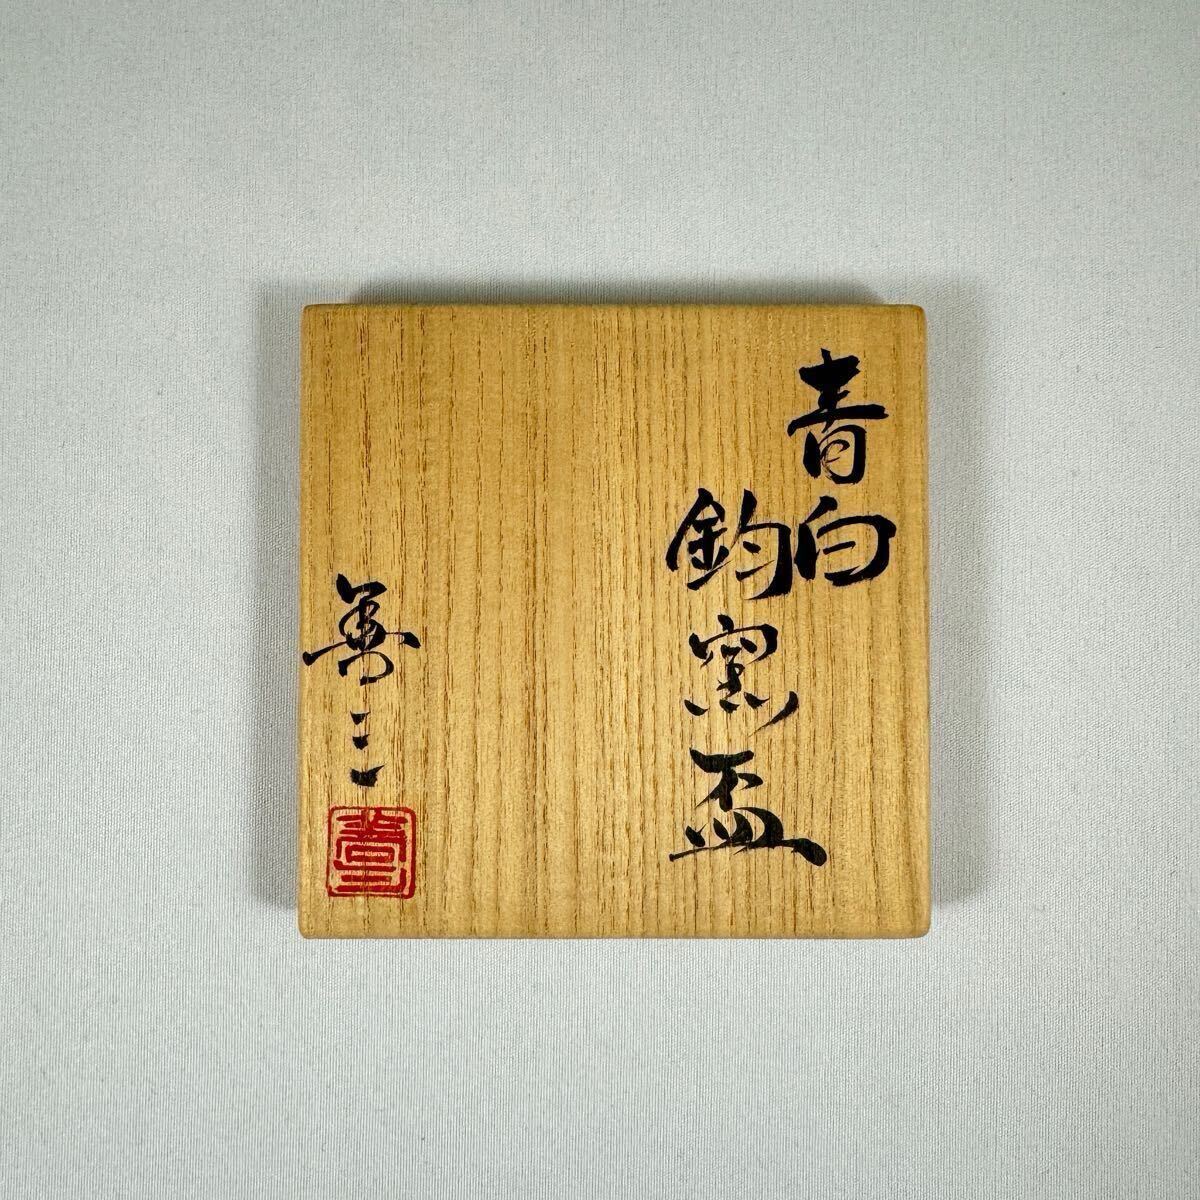 青白
鈞窯盃
善三